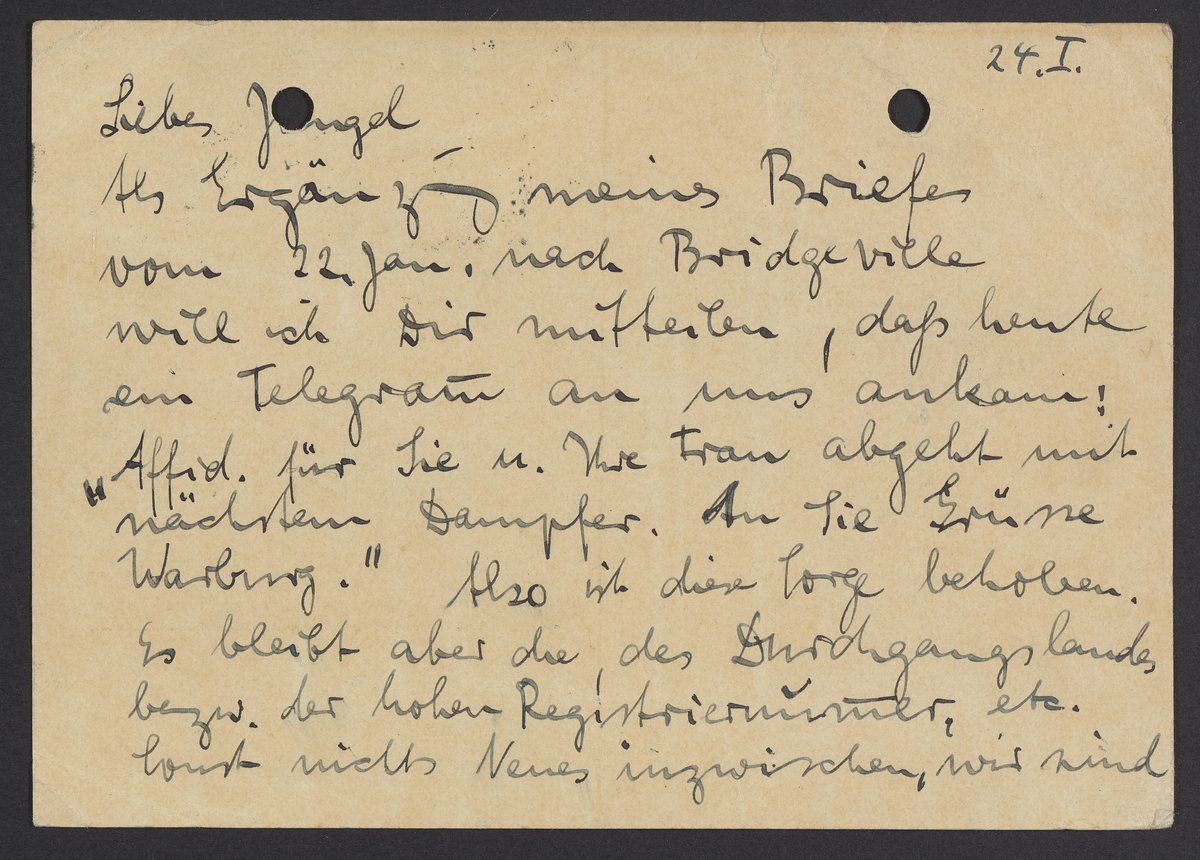 24.I.
Liebes Jungel
Als Ergänzung meines Briefes
vom 22. Jan. nach Bridgeville
will ich Dir mitteilen, daß heute
ein Telegram̅ an uns ankam:
„Affid. für Sie u. Ihre Frau abgeht mit
nächstem Dampfer. An Sie Grüsse
Warburg." Also ist diese Sorge behoben.
Es bleibt aber die, des Durchgangslandes
bezw. der hohen Registriernum̅er, etc.
Sonst nichts Neues inzwischen, wir sind